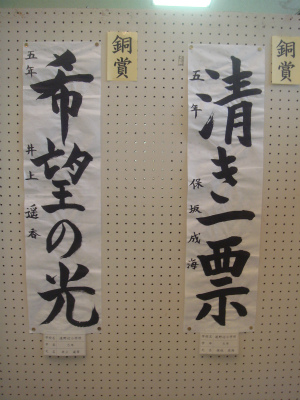 銅賞
清き一票
五年
保坂成海
銅賞
希望の光
五年
井上遥香